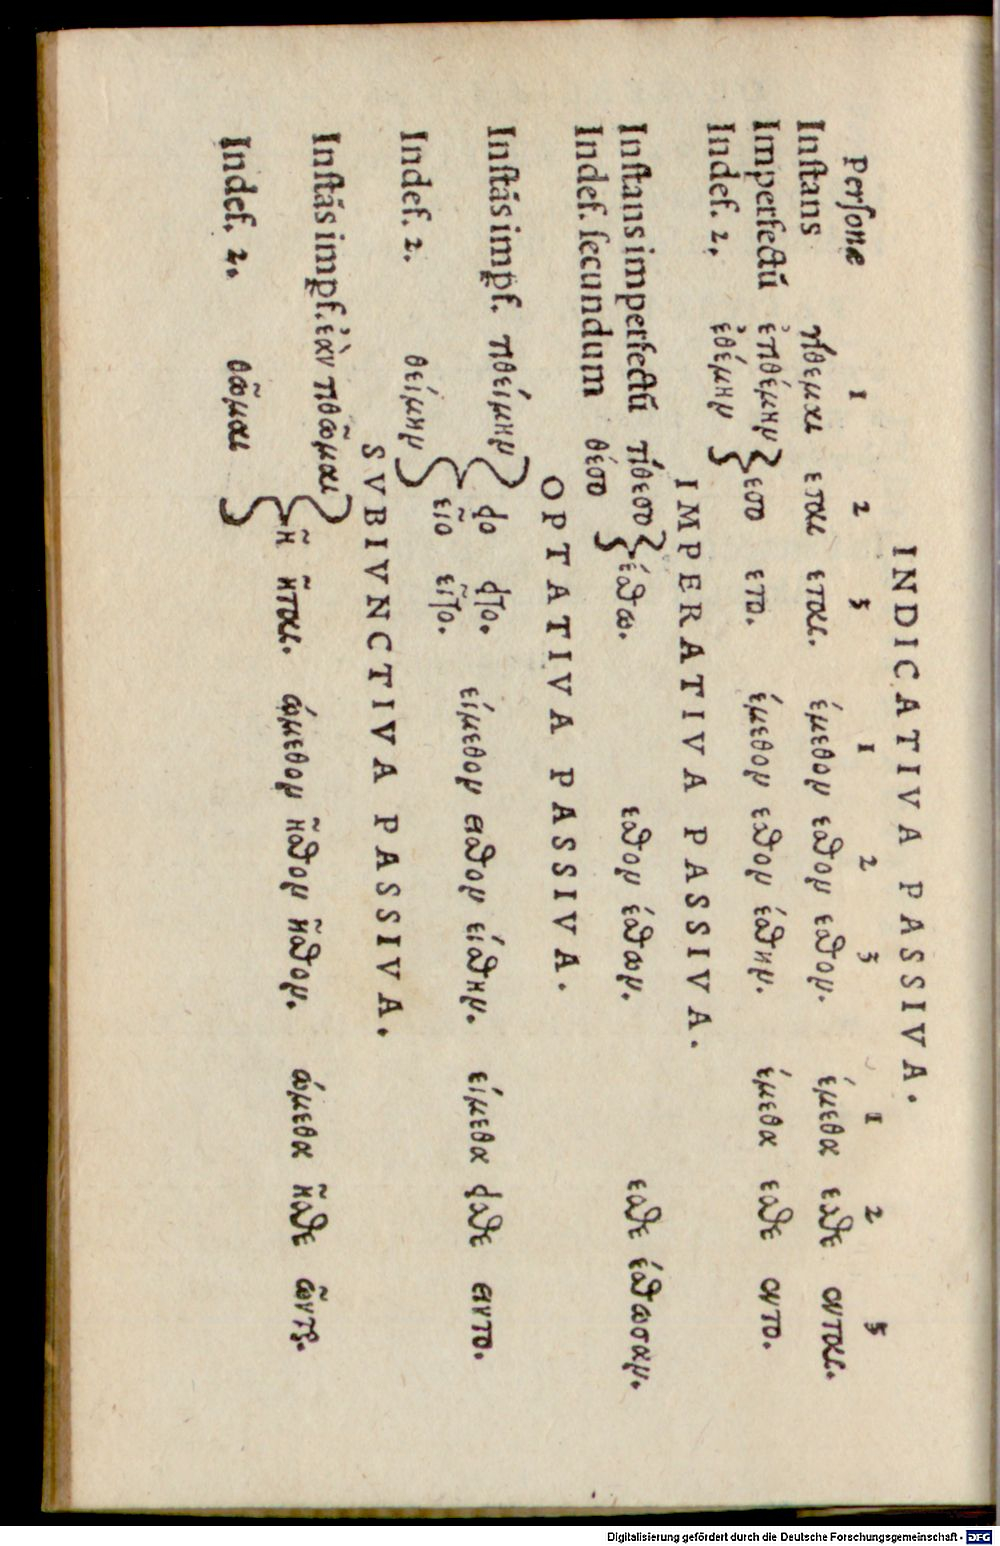 INDICATIVA PASSIVA.
Personæ 1 2 3 1 2 3 1 2 3
Instans τίθεμαι εσαι εται. έμεθον εσθον εσθον. έμεθα εσθε ενται.
Imperfectū ἐτιθέμην } εσο ετο. έμεθον εσθον έσθην. έμεθα εσθε εντο.
Indef. 2. ἐθέμην
IMPERATIVA PASSIVA.
Instans imperfectū τίθεσο } έσθω. εσθον έσθων. εσθε έσθωσαν.
Indef. secundum θέσο
OPTATIVA PASSIVA.
Instās impf. τιθείμην } εῖο εῖτο. είμεθον εισθον είσθην. είμεθα εισθε ειντο.
Indef. 2. θείμην } εῖο εῖτο.
SVBIVNCTIVA PASSIVA.
Instās impf. ἐὰν τιθῶμαι } ῆ ῆται. ώμεθον ῆσθον ῆσθον. ώμεθα ῆσθε ῶνται.
Indef. 2. θῶμαι
Digitalisierung gefördert durch die Deutsche Forschungsgemeinschaft - DFG